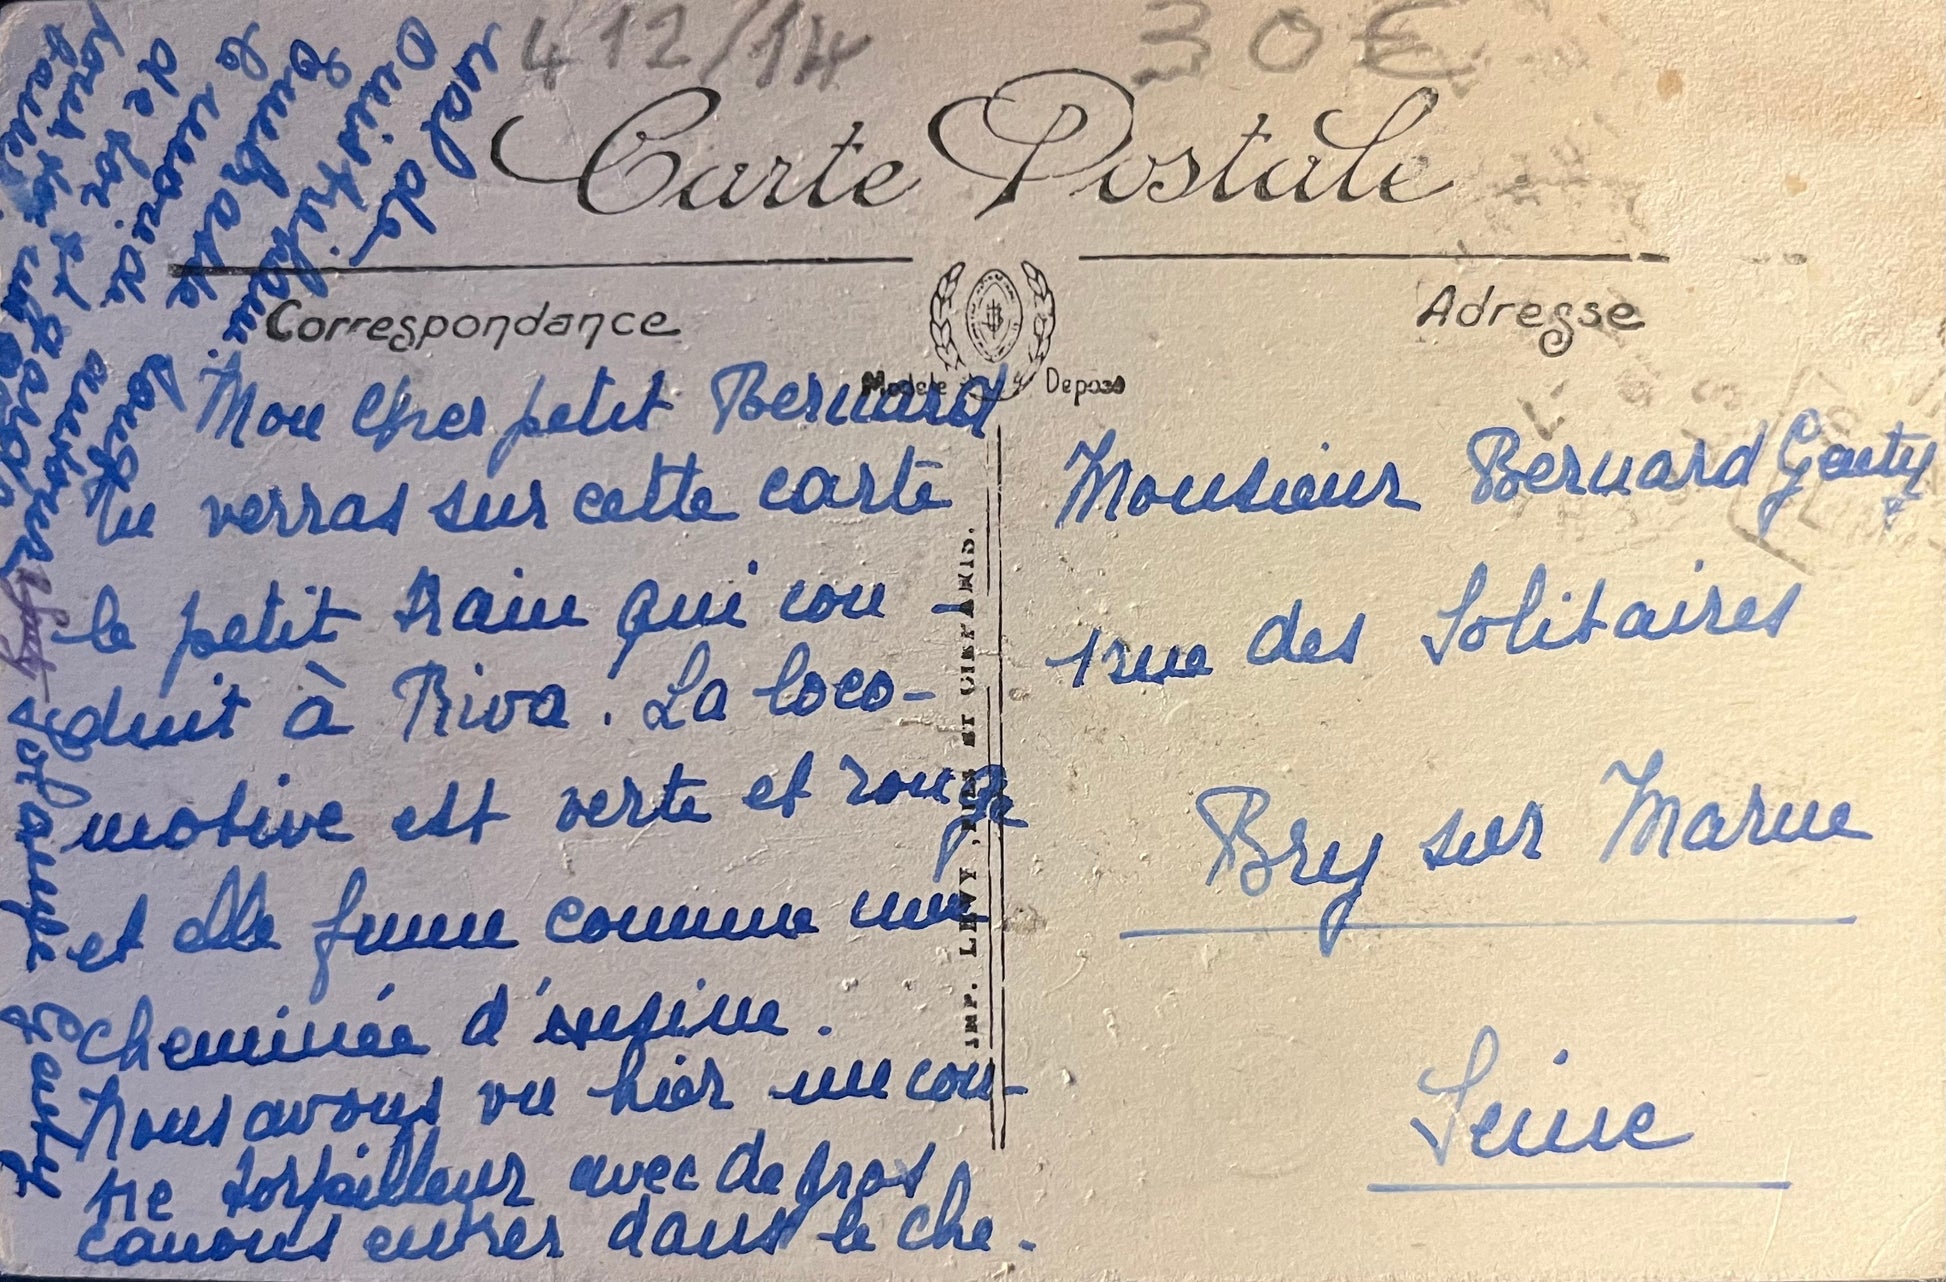 412/14
30€
Carte Postale
Correspondance
Adresse
Modèle Déposé
Mon cher petit Bernard
tu verras sur cette carte
le petit train qui con-
duit à Riva. La loco-
motive est verte et rouge
et elle fume comme une
cheminée d'usine.
Nous avons vu hier un con-
tre torpilleur avec de gros
canons entrer dans le che-
nal de
Ouistreham
Quel
Je
de toi et
Genty
IMP. LÉVY
Monsieur Bernard Genty
1 rue des Solitaires
Bry sur Marne
Seine